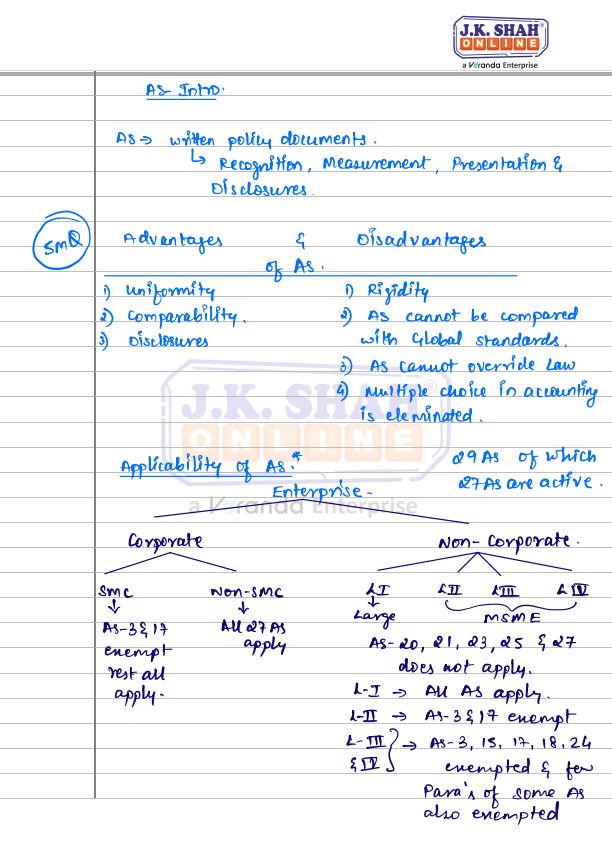 J.K. SHAH®
ONLINE
a Veranda Enterprise
AS-Intro.
AS → written policy documents.
↳ Recognition, Measurement, Presentation &
Disclosures.
SMQ
Advantages & Disadvantages
of AS.
1) Uniformity
2) Comparability.
3) Disclosures
1) Rigidity
2) AS cannot be compared
with Global standards.
3) AS cannot override Law
4) Multiple choice in accounting
is eleminated.
J.K. SHAH®
ONLINE
a Veranda Enterprise
Applicability of AS.*
29 AS of which
27 AS are active.
Enterprise-
Corporate
Non-Corporate.
SMC
↓
AS-3 & 17
exempt
rest all
apply.
Non-SMC
↓
All 27 AS
apply
L I
↓
Large
L II L III L IV
MSME
AS-20, 21, 23, 25 & 27
does not apply.
L-I → All AS apply.
L-II → AS-3 & 17 exempt
L-III
& IV } → AS-3, 15, 17, 18, 24
exempted & few
Para's of some AS
also exempted